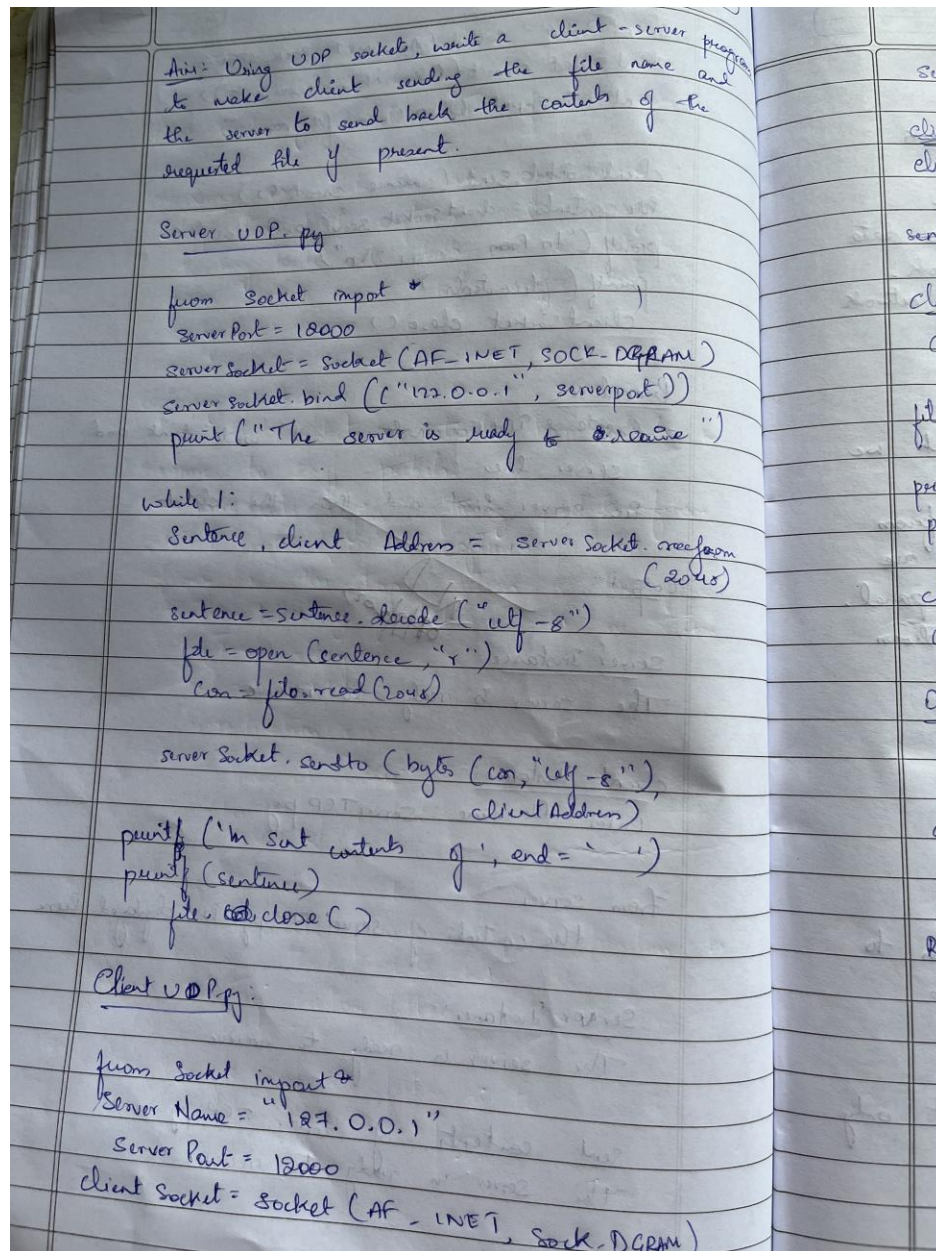 Aim: Using UDP sockets, write a client-server program
to make client sending the file name and
the server to send back the contents of the
requested file if present.
Server UDP.py
from Socket import *
serverPort = 12000
serverSocket = Socket (AF_INET, SOCK_DGRAM)
server socket.bind (("127.0.0.1", serverport))
print ("The server is ready to receive")
while 1:
Sentence, client Address = server Socket. recvfrom
(2048)
sentence = sentence. decode ("utf-8")
file = open (sentence, "r")
con = file.read (2048)
server Socket. sendto (bytes (con, "utf-8"),
client Address)
print ('\n sent contents of ', end = ' ')
print (sentence)
file. close ( )
Client UDP.py:
from Socket import *
Server Name = "127.0.0.1"
Server Port = 12000
client Socket = Socket (AF_INET, Sock_DGRAM)